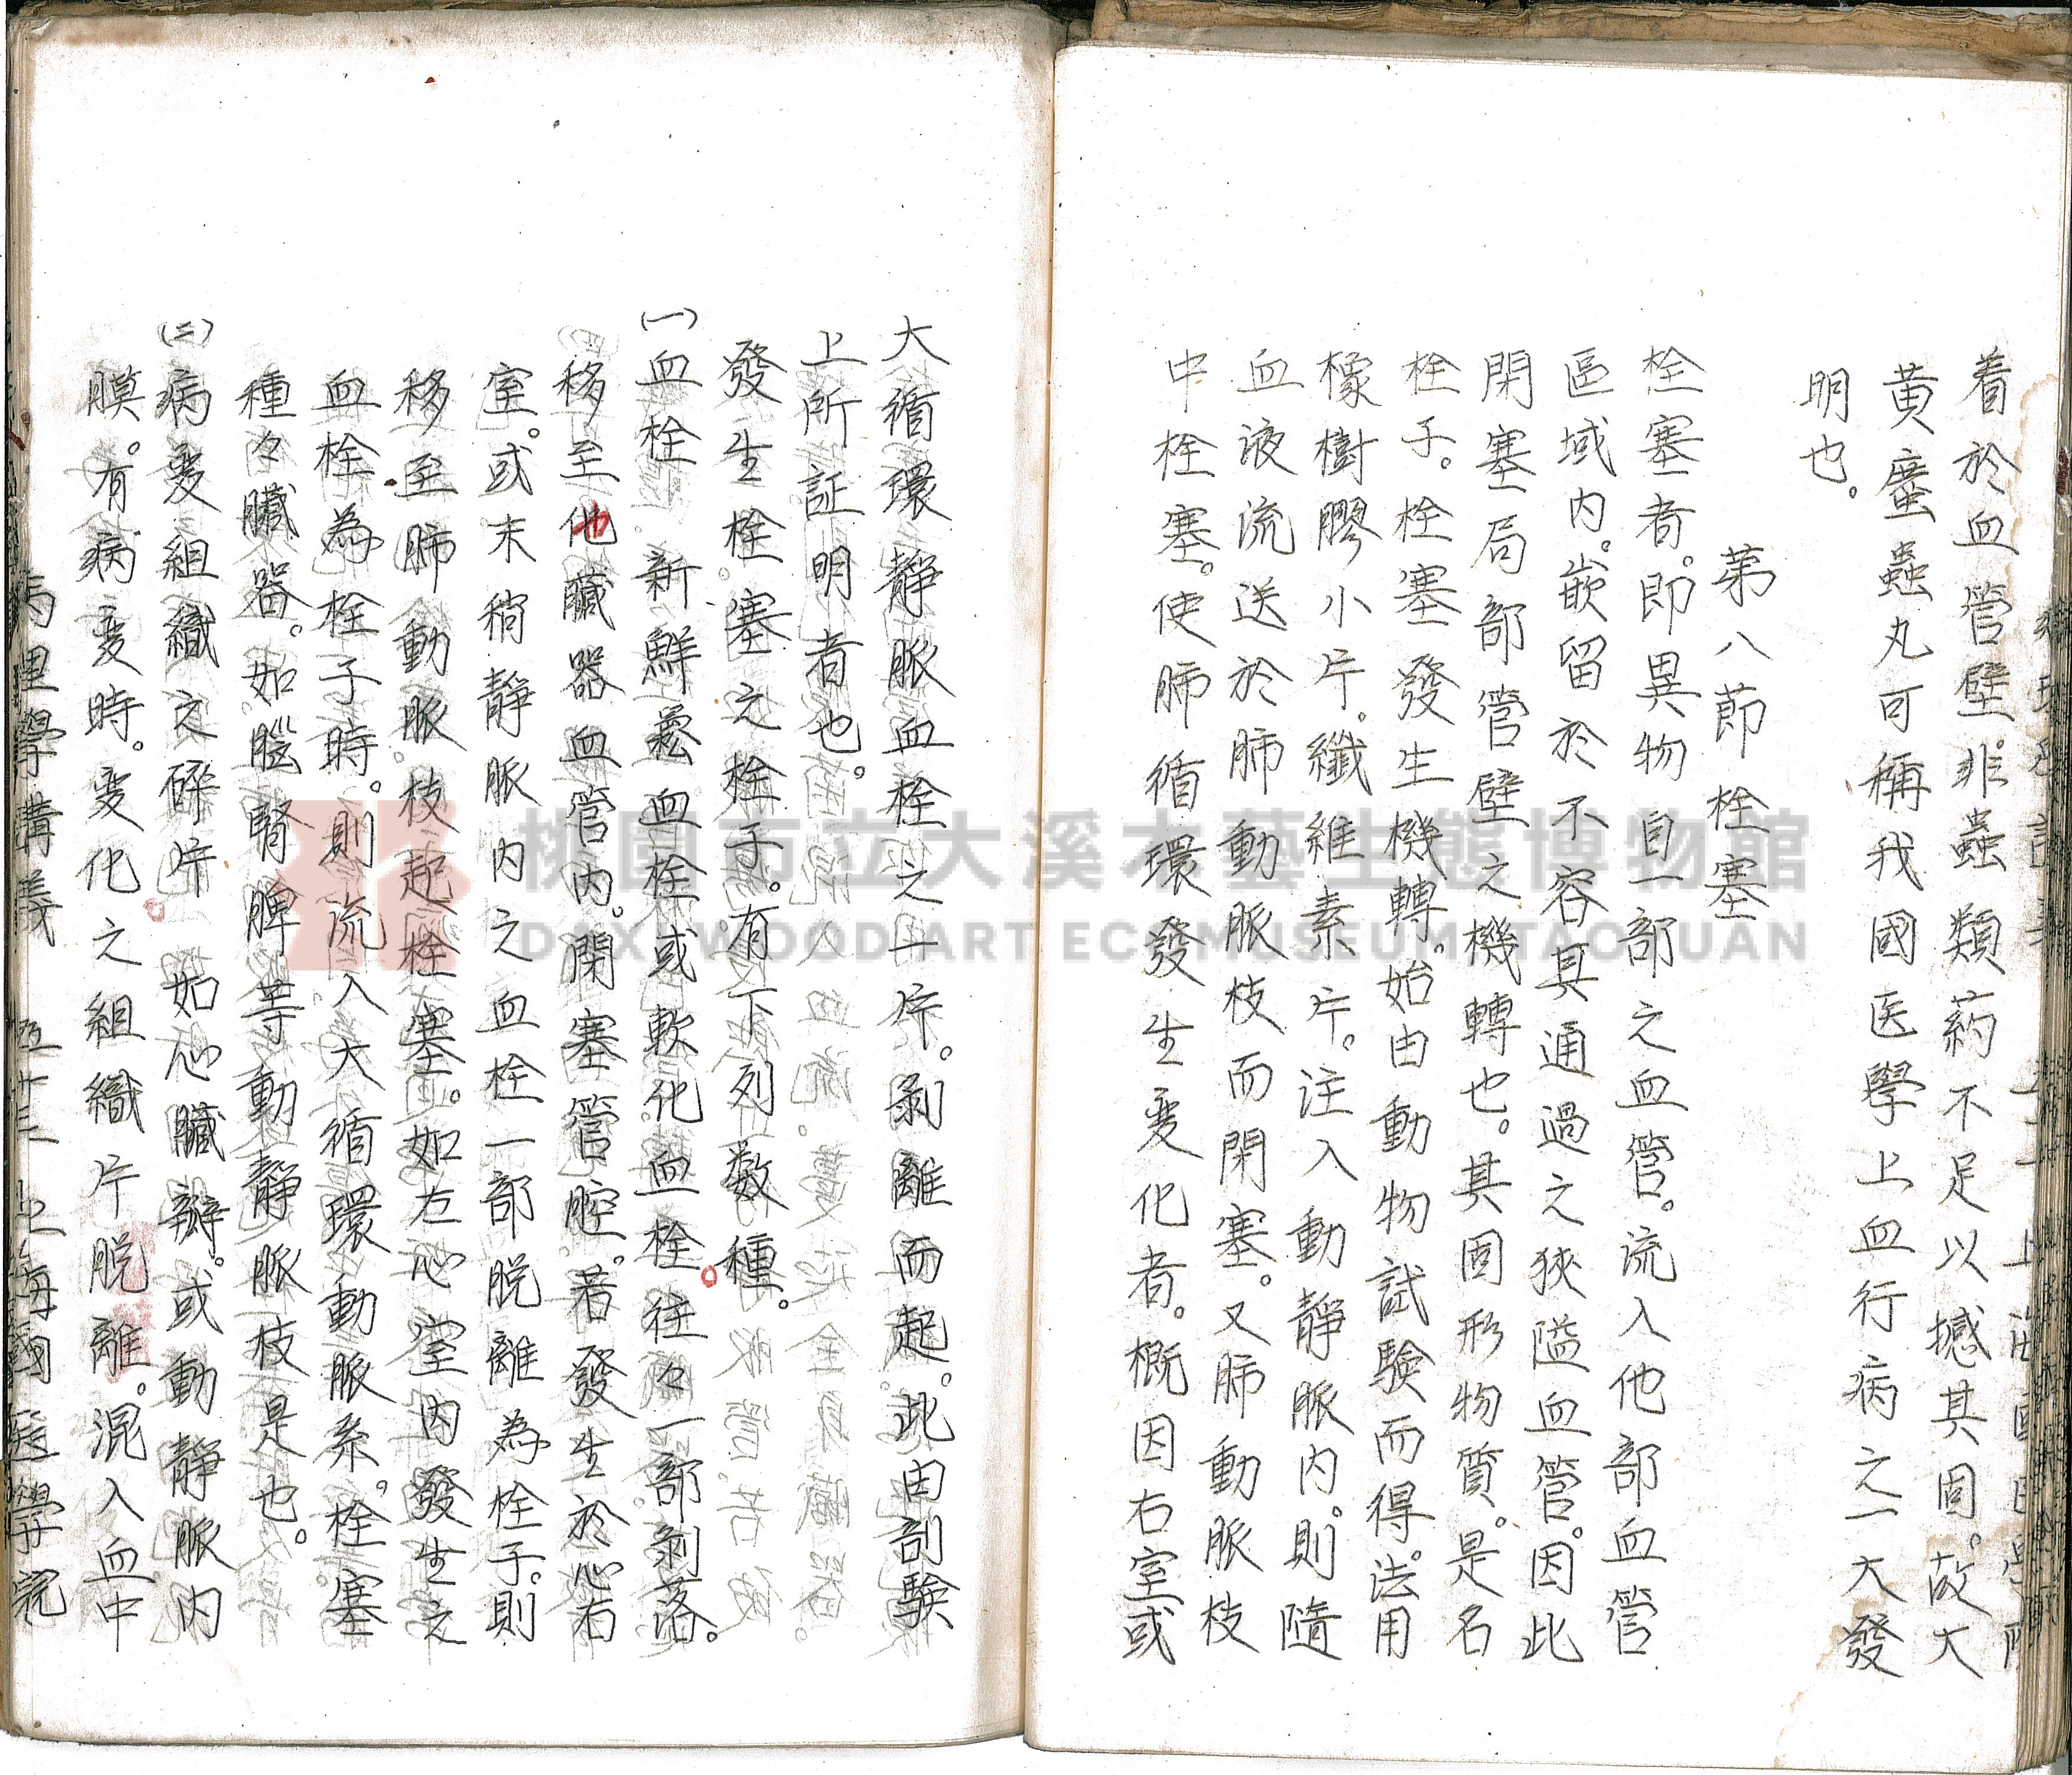 着於血管壁。非蟲類葯不足以撼其固。故大
黄䗪蟲丸可稱我國医學上血行病之一大發
明也。
第八節 栓塞
栓塞者。即異物自一部之血管。流入他部血管
區域内。嵌留於不容其通過之狹隘血管。因此
閉塞局部管壁之機轉也。其固形物質。是名
栓子。栓塞發生機轉。始由動物試驗而得。法用
橡樹膠小片。纖維素片。注入動靜脈内。則隨
血液流送於肺動脈枝而閉塞。又肺動脈枝
中栓塞。使肺循環發生变化者。概因右室或
大循環靜脈血栓之一片。剝離而起。此由剖驗
上所証明者也。
發生栓塞之栓子。有下列数種。
(一)血栓 新鮮血栓或軟化血栓。往々一部剝落。
移至他臟器血管内。閉塞管腔。若發生於心右
室。或末稍靜脈内之血栓一部脱離為栓子。則
移至肺動脈枝起栓塞。如左心室内發生之
血栓為栓子時。則流入大循環動脈系。栓塞
種々臟器。如腦腎脾等動靜脈枝是也。
(二)病变組織之碎片。如心臟瓣。或動靜脈内
膜。有病变時。变化之組織片脱離。混入血中
病理學講義 五十三 上海國醫學院
桃園市立大溪木藝生態博物館
DAXI WOOD ART ECOMUSEUM TAOYUAN